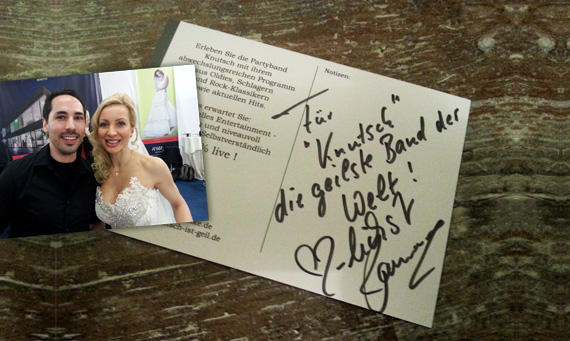 Erleben Sie die Partyband
Knutsch mit ihrem
abwechslungsreichen Programm
aus Oldies, Schlagern
und Rock-Klassikern
wie aktuellen Hits.
erwartet Sie:
elles Entertainment -
und niveauvoll
Selbstverständlich
% live !
ke.de
ch-ist-geil.de
Notizen:
für
"Knutsch"
die geilste Band der
Welt!
♡-lichst